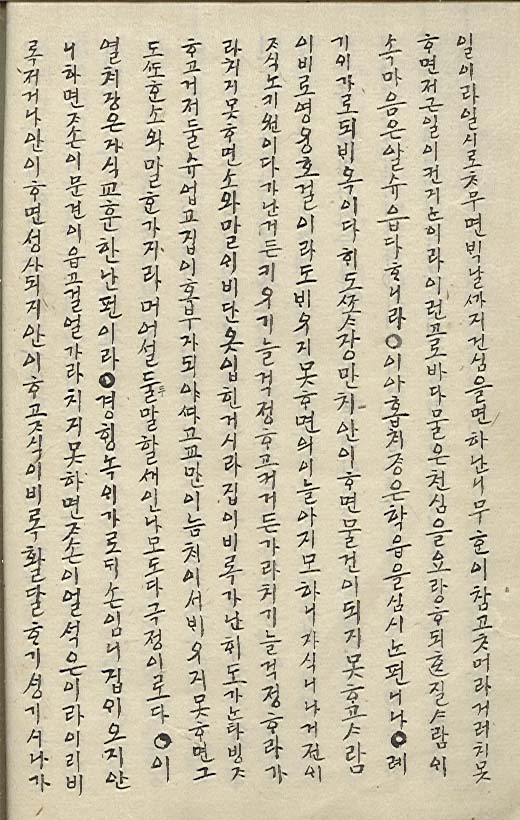 일이라일시로ᄎᆞ무면빅날ᄭᅡ지건심을면하난니무ᄒᆞ이참고ᄎᆞ머라거러치못
ᄒᆞ면저근일이컨지ᄂᆞ이라이런고로바다물은쳔심을요량ᄒᆞ되ᄒᆞᆫ질ᄉᆞ람의
소마음은알슈읍다ᄒᆞ니라○이아홉치중은학읍을심시ᄂᆞᆫ편니나○례
기의가로되비옥이다히도ᄯᅩᄉᆞ장만치안이ᄒᆞ면물건이되지못ᄒᆞ고ᄉᆞ람
이비로영웅호걸이라도비우지못ᄒᆞ면의이늘아지모하니자식니나거젼의
ᄌᆞ식노키원이다가난거든키우기늘걱졍ᄒᆞ고커거든가라치기늘걱졍ᄒᆞ라가
라치지못ᄒᆞ면소와말의비단옷입힌거시라집이비록가난히도가난타빙ᄌᆞ
ᄒᆞ고거저둘슈업고집이ᄒᆞᆸ부자되야ᄯᅡ고교만이늠치이서비우지못ᄒᆞ면그
도ᄯᅩᄒᆞᆫ소와말ᄃᆞᄒᆞᆫ가지라머어설둘말할ᄉᆡ인나모도다극졍이로다○이
열치장은자식교훈한난편이라○경힝녹의가로ᄃᆡ손임니집의오지안
니하면ᄌᆞ손이문견이읍고걸얼가라치지못하면ᄌᆞ손이얼석은이라이리비
록저거나안이ᄒᆞ면셩사되지안이ᄒᆞ고ᄌᆞ식이비록화ᄃᆞᆯᄒᆞ기싱기시나가